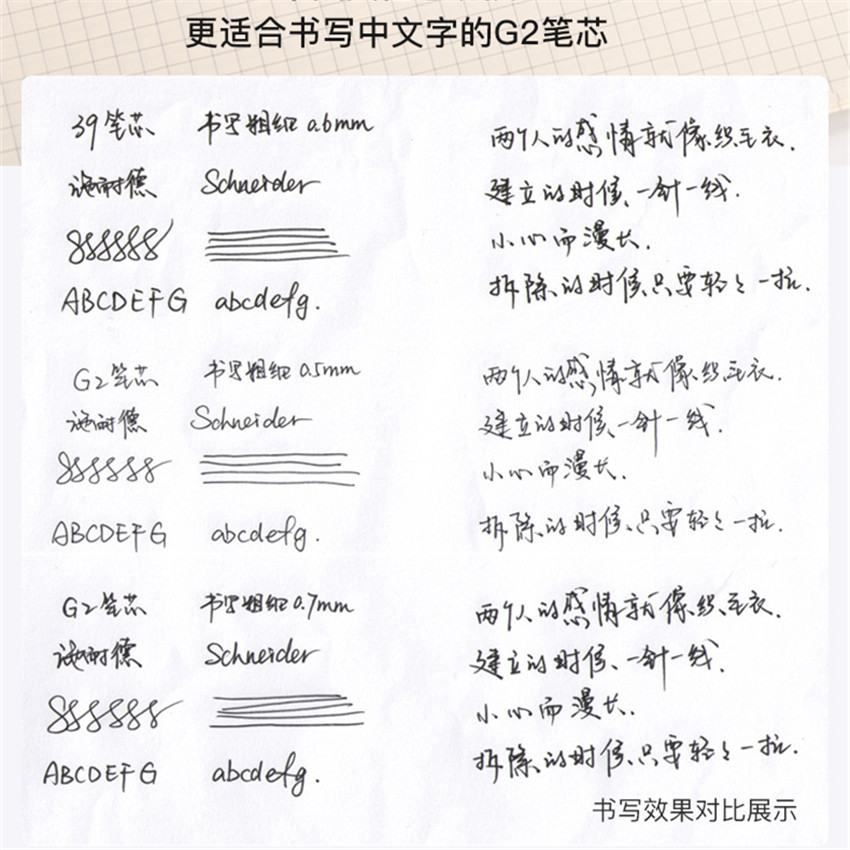 更适合书写中文字的G2笔芯
39笔芯 书写粗细 0.6mm
施耐德 Schneider
SSSSSSS
ABCDEFG abcdefg.
两个人的感情就像织毛衣.
建立的时候、一针一线.
小心而漫长.
拆除的时候只要轻轻一拉.
G2笔芯 书写粗细 0.5mm
施耐德 Schneider
SSSSSS
ABCDEFG abcdefg.
两个人的感情就像织毛衣.
建立的时候、一针一线.
小心而漫长.
拆除的时候、只要轻轻一拉.
G2笔芯 书写粗细 0.7mm
施耐德 Schneider
SSSSSS
ABCDEFG abcdefg.
两个人的感情就像织毛衣.
建立的时候、一针一线.
小心而漫长.
拆除的时候、只要轻轻一拉.
书写效果对比展示